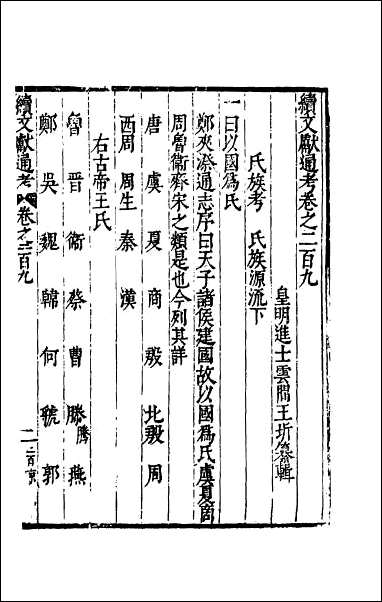 續文獻通考卷之二百九
皇明進士雲間王圻纂輯
氏族考　氏族源流下
一曰以國為氏
鄭夾漈通志序曰天子諸侯建國故以國為氏虞夏商
周魯衛齊宋之類是也今列其詳
唐　虞　夏　商　殷　北殷　周
西周　周生　秦　漢
右古帝王氏
魯　晉　衛　蔡　曹　滕　騰　燕
鄭　吳　魏　韓　何　虢　郭
續文獻通考　卷之二百九　一